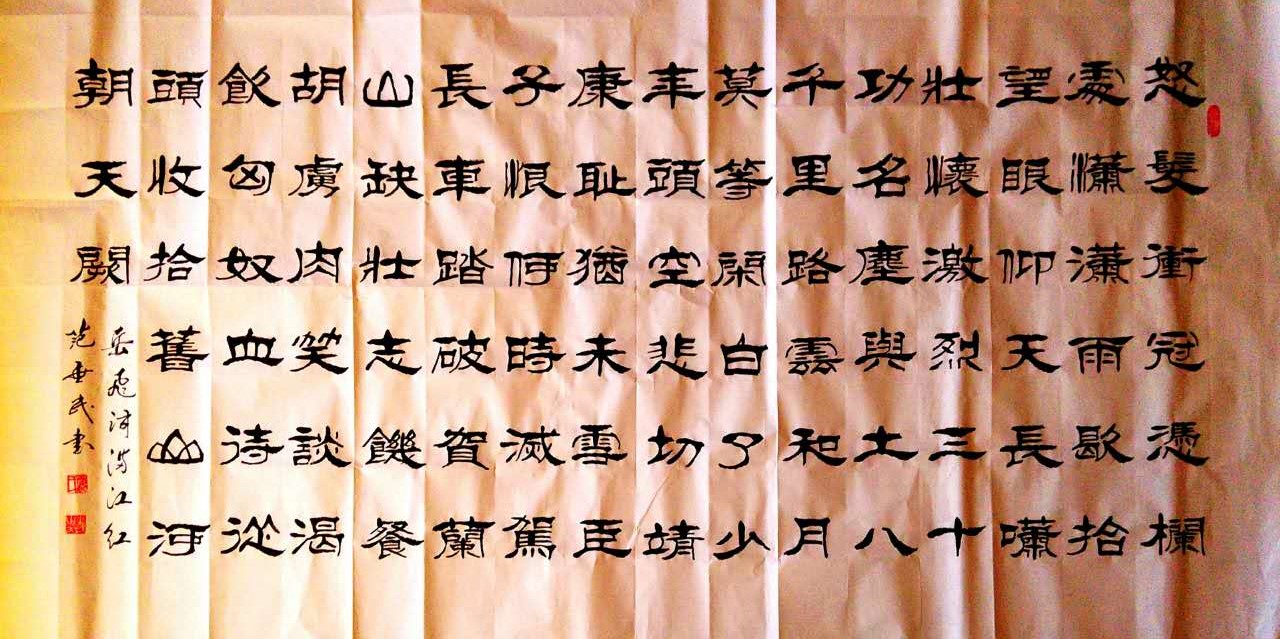 怒髮衝冠憑欄
處瀟瀟雨歇抬
望眼仰天長嘯
壯懷激烈三十
功名塵與土八
千里路雲和月
莫等閑白了少
年頭空悲切靖
康耻猶未雪臣
子恨何時滅駕
長車踏破賀蘭
山缺壯志饑餐
胡虜肉笑談渴
飲匈奴血待從
頭收拾舊山河
朝天闕
岳飛詞滿江红
范民书